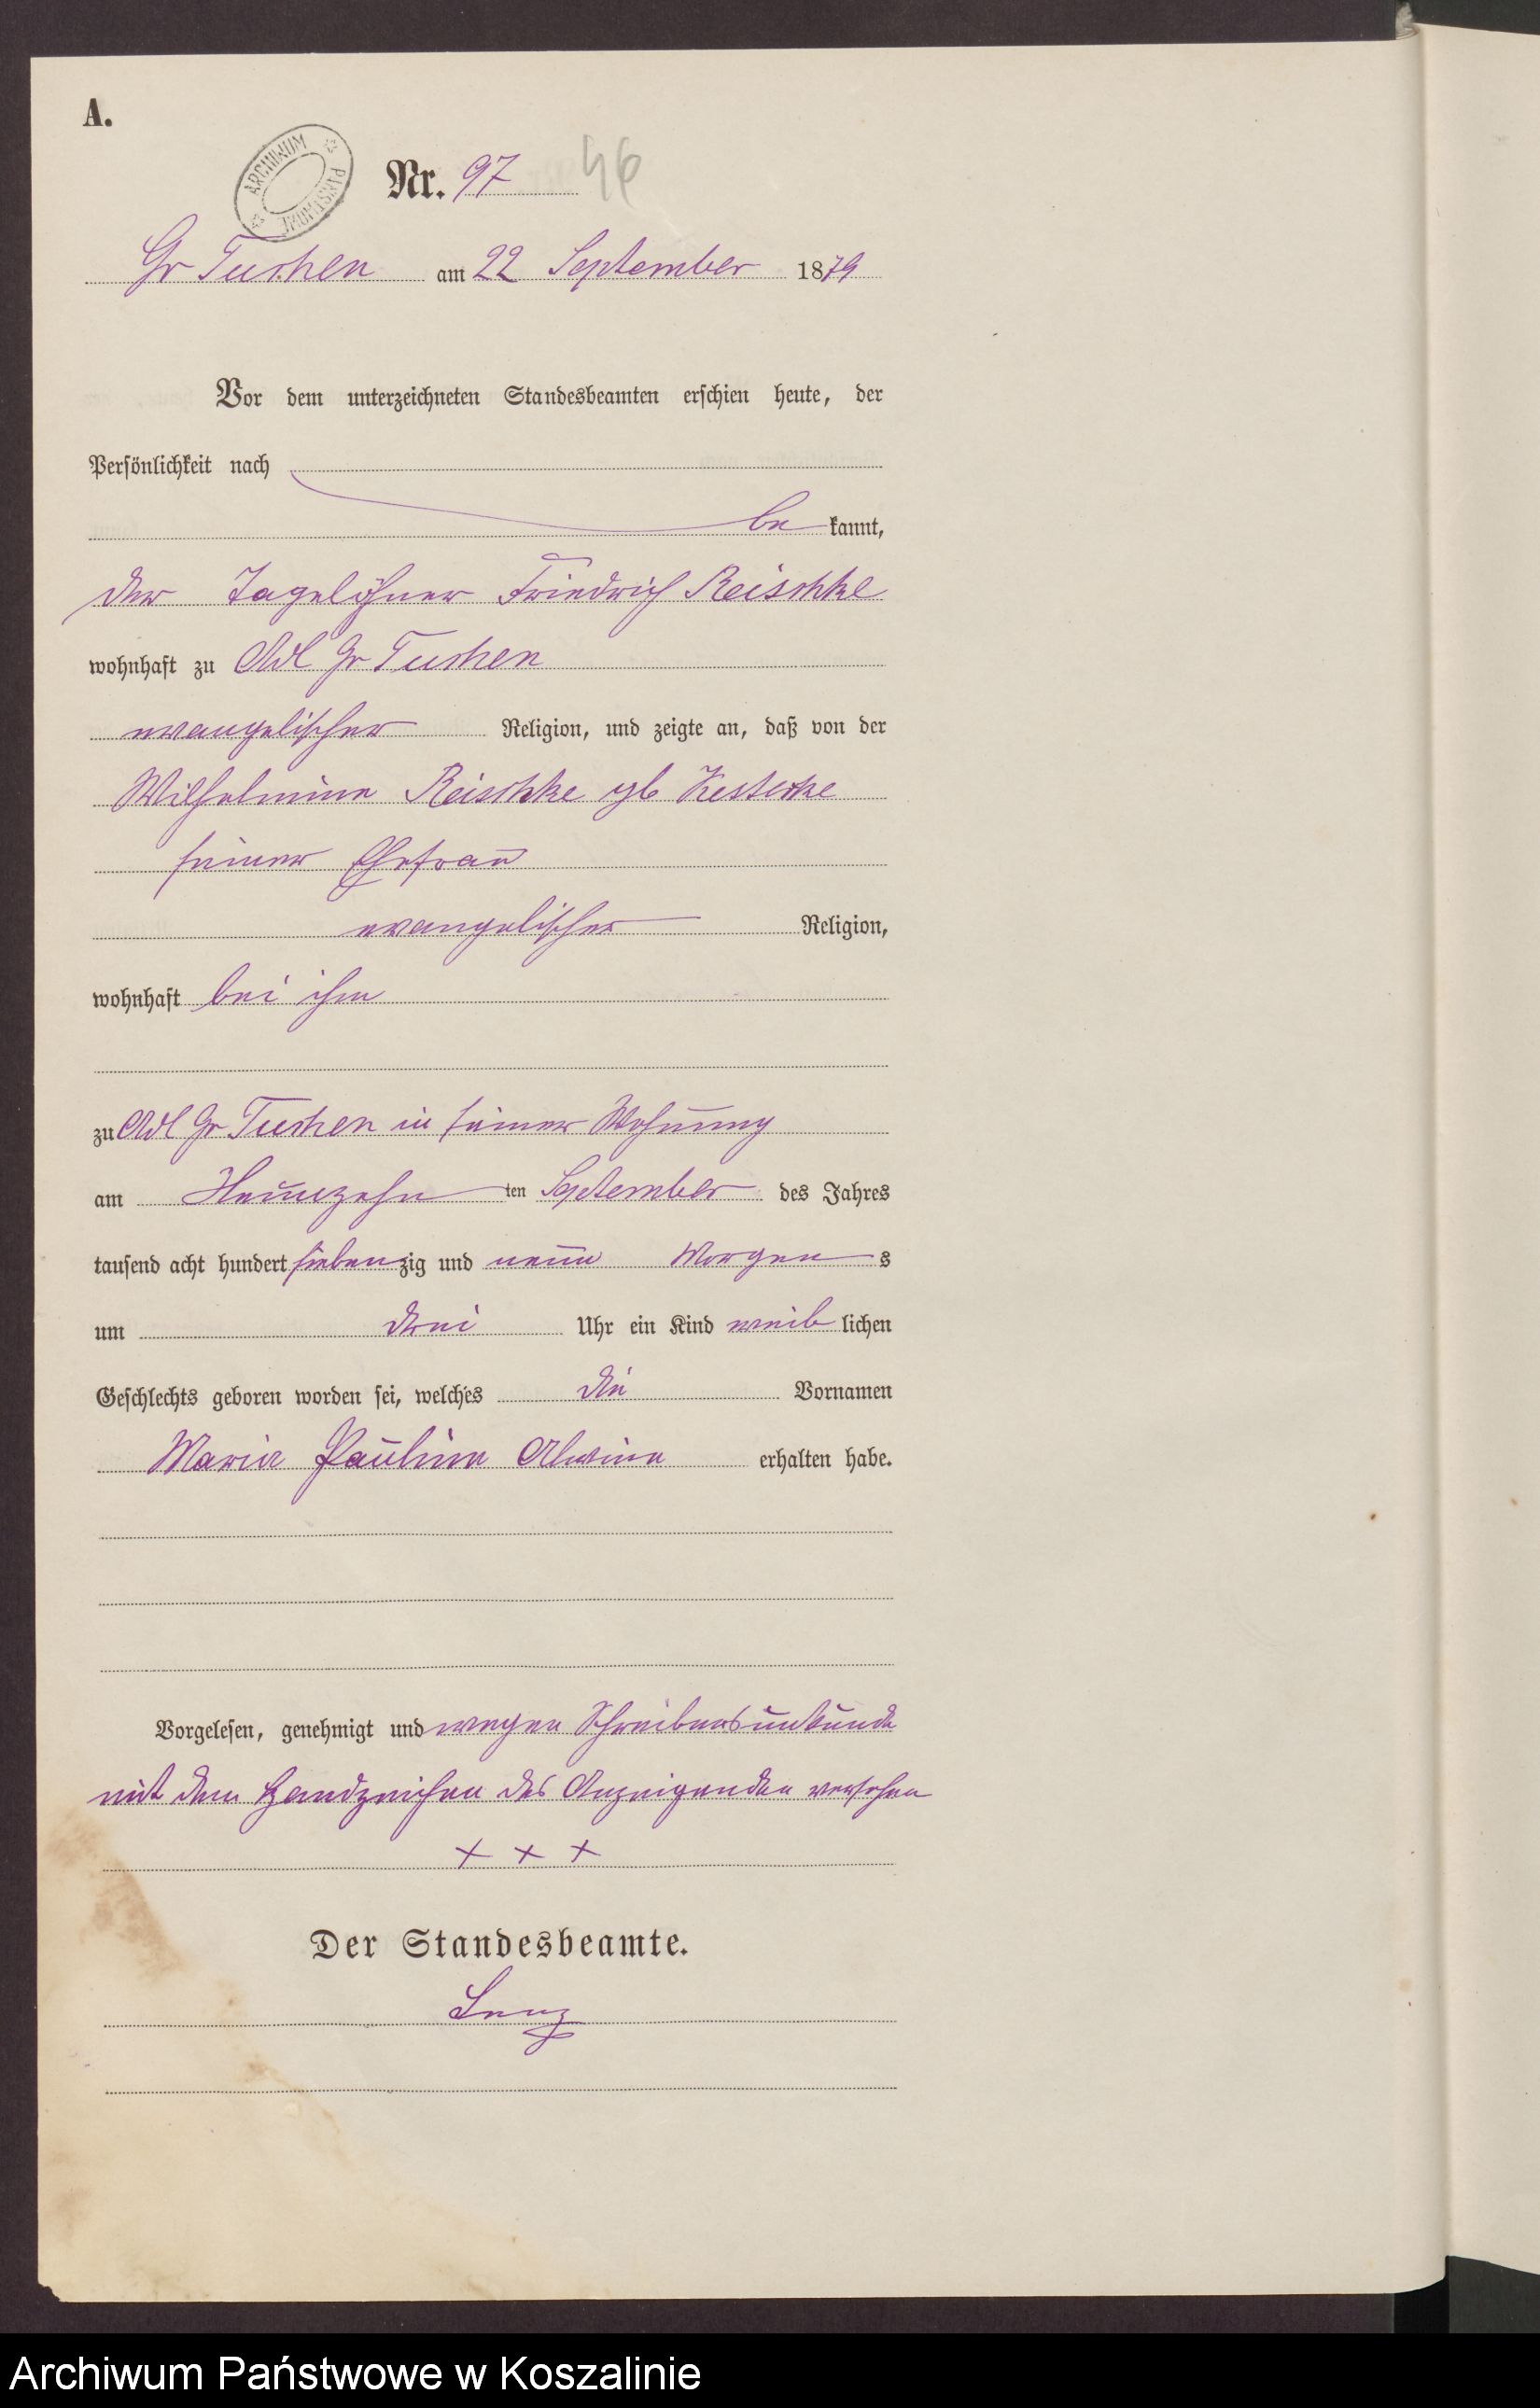 A.
ARCHIWUM PAŃSTWOWE
Nr. 97 46
Gr Tuchen am 22 September 1879
Vor dem unterzeichneten Standesbeamten erschien heute, der
Persönlichkeit nach
be kannt,
der Tagelöhner Friedrich Reischke
wohnhaft zu Adl Gr Tuchen
evangelischer Religion, und zeigte an, daß von der
Wilhelmine Reischke gb
seiner Ehefrau
evangelischer Religion,
wohnhaft bei ihm
zu Adl Gr Tuchen in seiner Wohnung
am Neunzehn ten September des Jahres
tausend acht hundert sieben zig und neun Morgen s
um drei Uhr ein Kind weib lichen
Geschlechts geboren worden sei, welches die Vornamen
Marie Pauline Alwine erhalten habe.
Vorgelesen, genehmigt und wegen Schreibensunkunde
mit dem Handzeichen des Anzeigenden versehen
+ + +
Der Standesbeamte.
Lenz
Archiwum Państwowe w Koszalinie